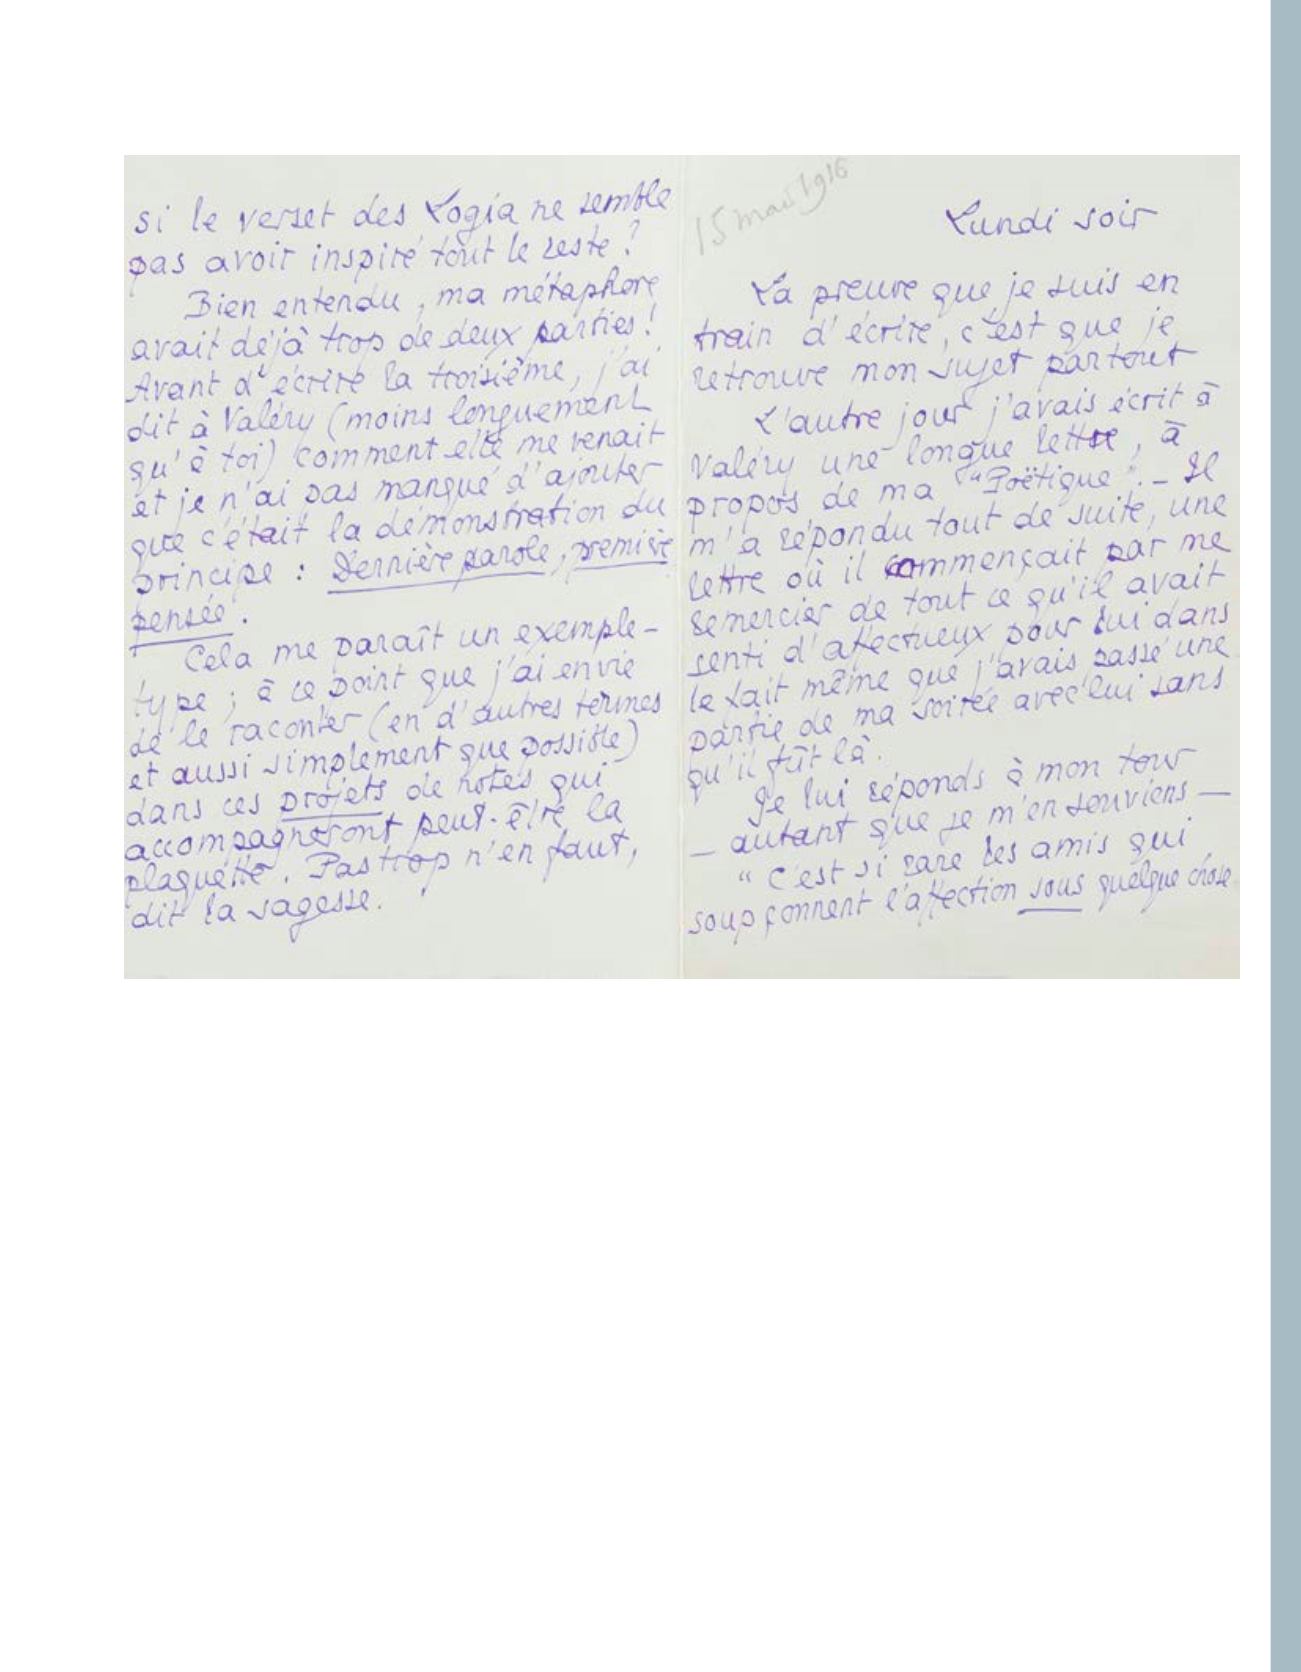 si le verset des Logia ne semble
pas avoir inspiré tout le reste ?
Bien entendu, ma métaphore
avait déjà trop de deux parties !
Avant d'écrire la troisième, j'ai
dit à Valéry (moins longuement
qu'à toi) comment elle me venait
et je n'ai pas manqué d'ajouter
que c'était la démonstration du
principe : Dernière parole, première
pensée.
Cela me paraît un exemple-
type ; à ce point que j'ai envie
de le raconter (en d'autres termes
et aussi simplement que possible)
dans ces projets de notes qui
accompagneront peut-être la
plaquette. Pas trop n'en faut,
dit la sagesse.
15 1916
Lundi soir
La preuve que je suis en
train d'écrire, c'est que je
retrouve mon sujet partout
L'autre jour j'avais écrit à
Valéry une longue lettre, à
propos de ma "Poëtique". – Il
m'a répondu tout de suite, une
lettre où il commençait par me
remercier de tout ce qu'il avait
senti d'affectueux pour lui dans
le fait même que j'avais passé une
partie de ma soirée avec lui sans
qu'il fût là.
Je lui réponds à mon tour
— autant que je m'en souviens —
"C'est si rare les amis qui
soupçonnent l'affection sous quelque chose